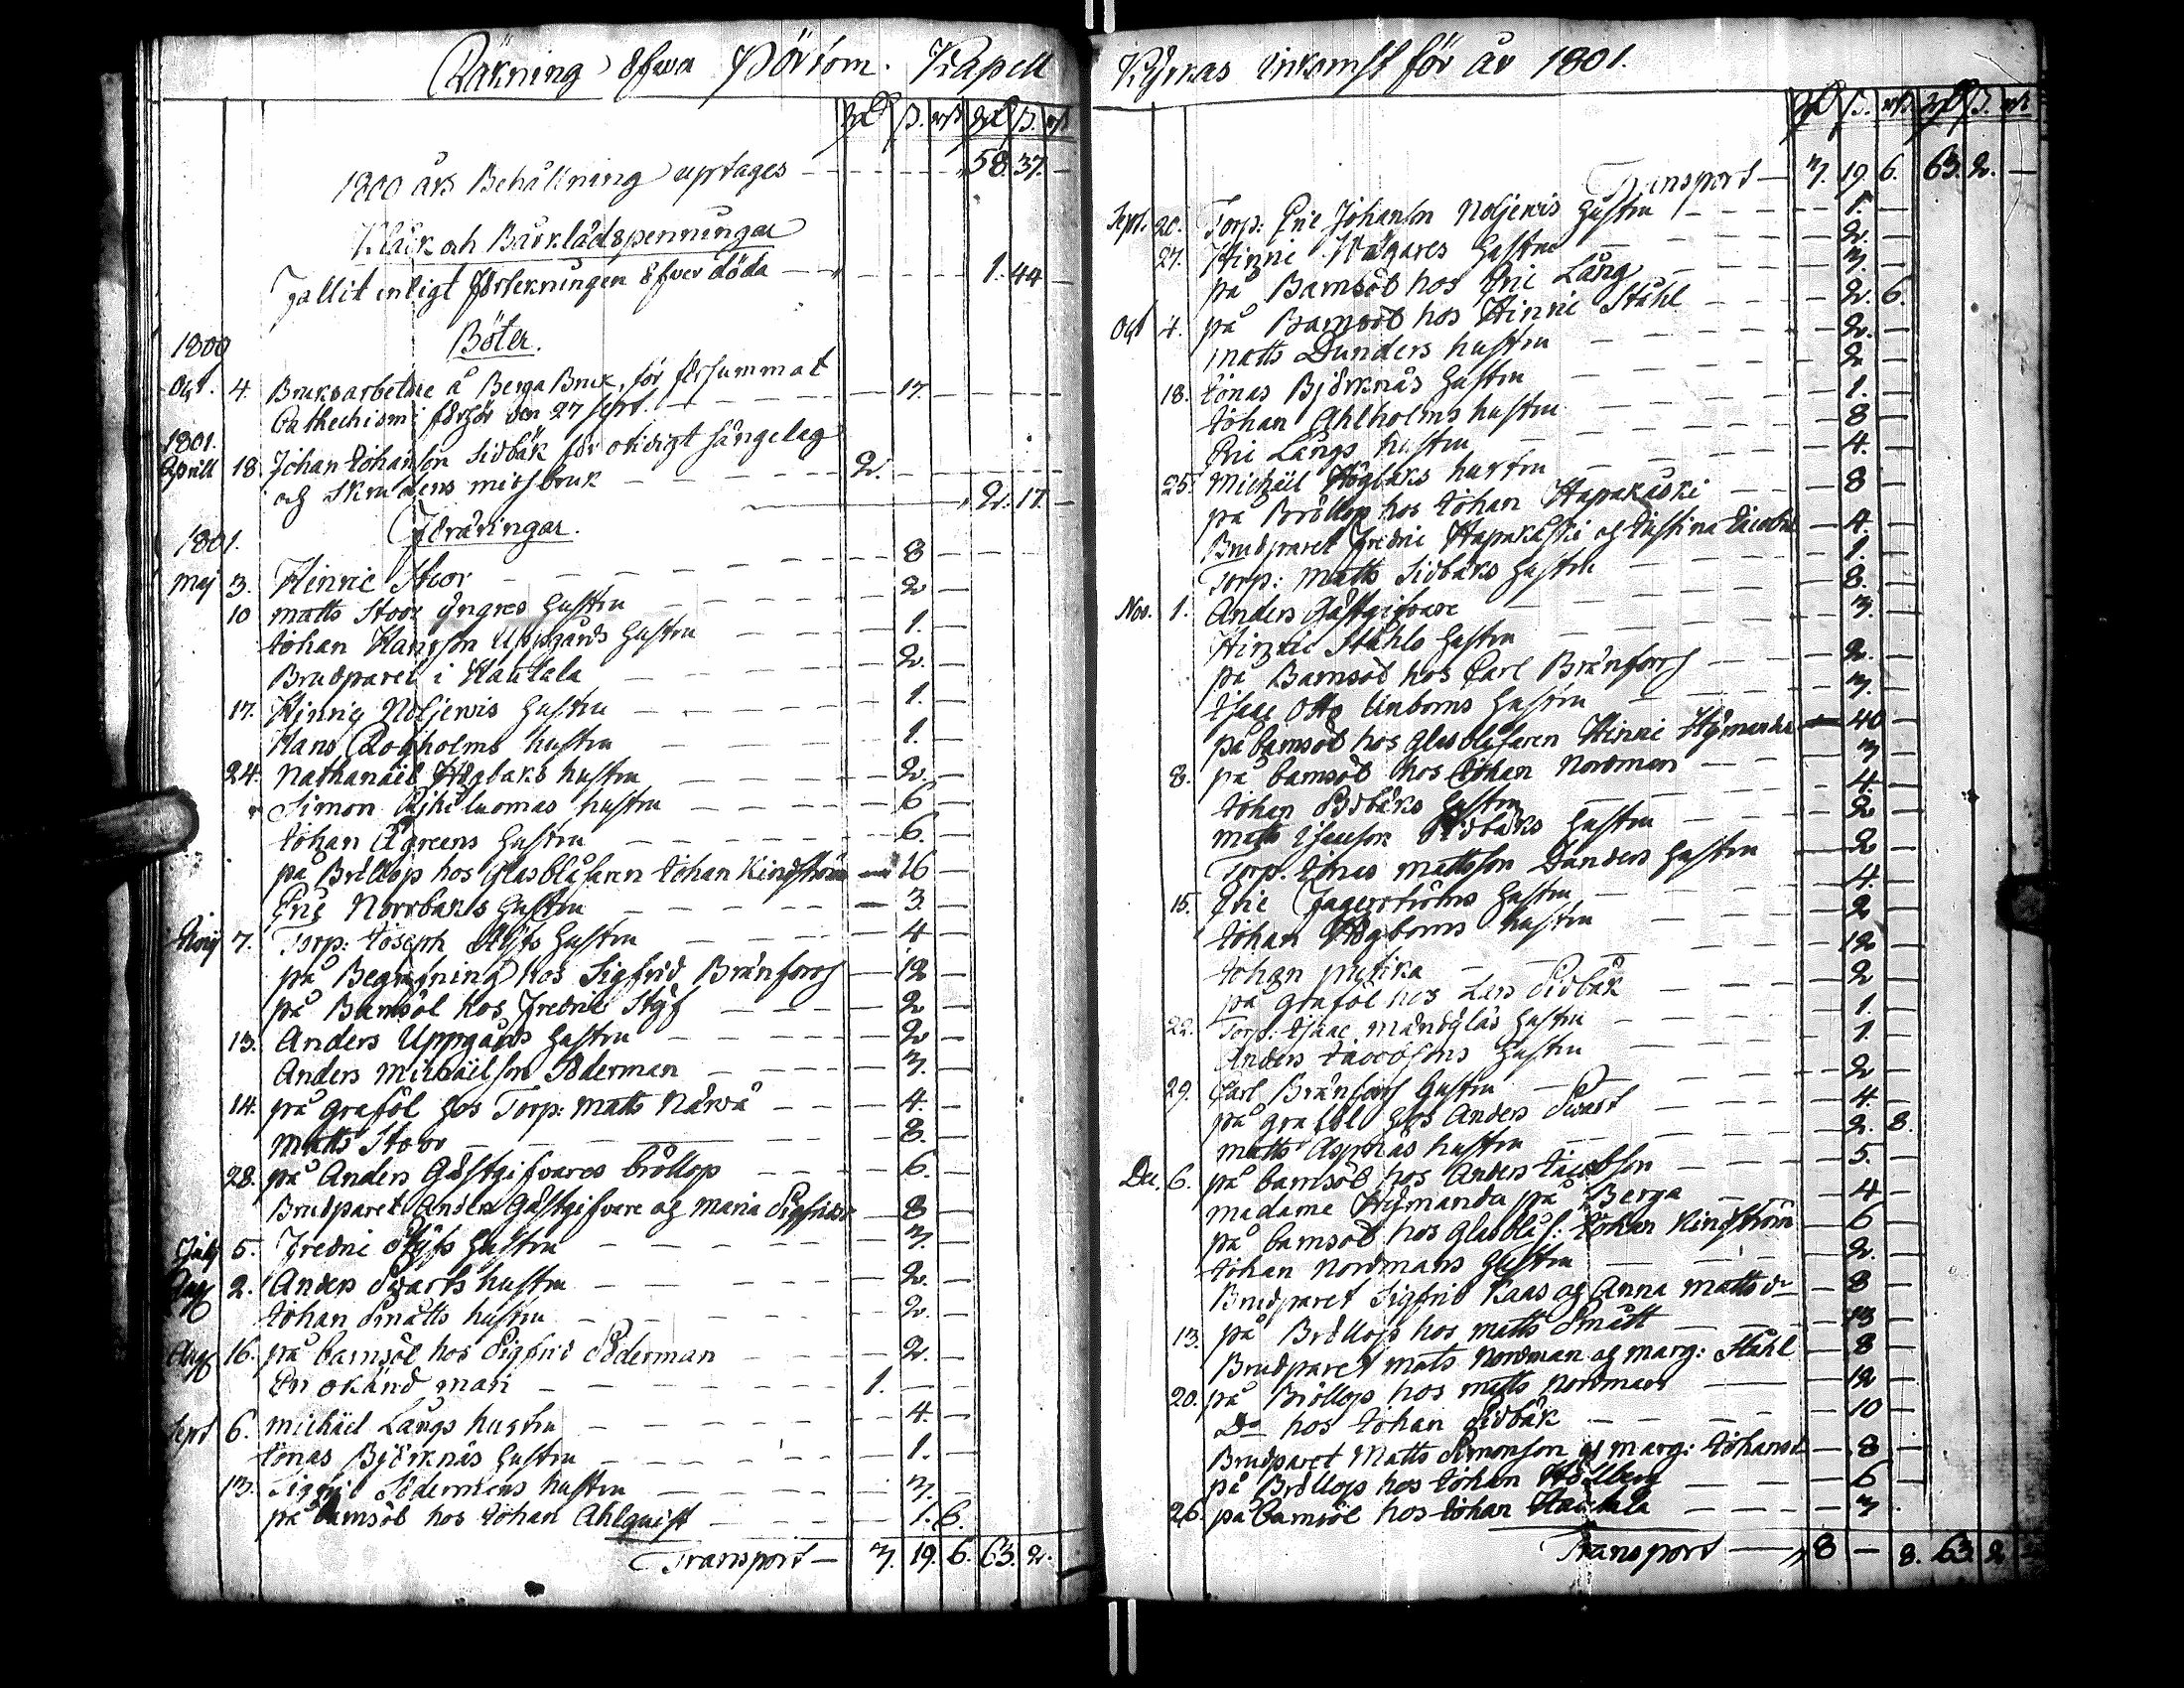 Räkning öfwer Pörtom. Kapell
1800 års Behållning uptages — 58. 37. —
Klåck och Bårklädspenningar
Fallit enligt förtekningen öfwer döda — 1. 44 —
1800 Böter.
Oct. 4. Bruksarbetare å Berga Bruk, för försummat — 17. —
Cathechismi förhör den 27 Sept.
1801.
Aprill 18. Johan Johansson Sidbäk för otidigt sängelag
och Skrudens missbruk — 2. — 2. 17. —
1801. Föräringar.
Maj 3. Hinric Stoor — 8 —
10 Matts Stoor yngres hustru — 2 —
Johan Hansson Uppgårds hustru — 1. —
Brudparet i Hautala — 2. —
17. Hinric Noljewis hustru — 1. —
Hans Rogholms hustru — 1. —
24. Nathanäel Högbaks hustru — 2. —
Simon hustru — 6 —
Johan Ågreens hustru — 6. —
på Bröllop hos Glasblåsaren Johan Kindström — 16 —
Eric Norrbaks hustru — 3. —
7. Torp: Joseph Styfs hustru — 4 —
på Begrafning hos Sigfrid Bränfors — 12 —
på Barnsöl hos Fredric Styf — 2 —
13. Anders Uppgårds hustru — 2 —
Anders Michäelsson Söderman — 3. —
14. på grafööl hos Torp: Matts Närwä — 4. —
Matts Stoor — 8. —
28. på Anders Gästgifvares bröllop — 6. —
Brudparet Anders Gästgifvare och Maria Sigfridsd. — 8 —
July 5. Fredric Styfs hustru — 3. —
Aug 2. Anders Swarts hustru — 2. —
Johan Smätts hustru — 2. —
Aug 16. på barnsöl hos Sigfrid Söderman — 2. —
En okänd man — 1. —
Sept 6. Michäel Långs hustru — 4. —
Jonas Björknäs hustru — 1. —
13. Sigfrid Södermans hustru — 3. —
på barnsöl hos Johan Ahlquist — 1. 6.
Transport — 3. 19. 6. 63. 2.
Kyrkas inkomst för år 1801.
Transport — 3. 19. 6. 63. 2. —
Sept. 20. Torp: Eric Johansson Noljewis hustru — 1. —
27. Hinric hustru — 2. —
på Barnsöl hos Eric Lång — 3. —
Oct 4. på Barnsöl hos Hinric Ståhl — 2. 6.
Matts Dunders hustru — 2. —
18. Jonas Björknäs hustru — 2 —
Johan Ahlholms hustru — 1. —
Eric Långs hustru — 8 —
25. Michäel Högbaks hustru — 4. —
på Bröllop hos Johan Hapakåski — 8 —
Brudparet Fredric Hapakåski och Justina Jacobsd — 4. —
Torp: Matts Sidbäks hustru — 1. —
Nov. 1. Anders Gästgifvare — 8. —
Hinric Ståhls hustru — 3. —
på Barnsöl hos Carl Bränfors — 2. —
Isaac Otto Linborns hustru — 3. —
på barnsöl hos Glasblåsaren Hinric — 40 —
8. på barnsöl hos Johan Nordman — 3 —
Johan hustru — 4. —
Matts Isacsson Sidbäks hustru — 2 —
Torp. Jonas Mattsson Dunders hustru — 2 —
15. Eric Jagerströms hustru — 4. —
Johan Högborns hustru — 2 —
Johan — 12 —
på grafööl hos Lars Sidbäk — 2 —
22. Torp: Isaac hustru — 1. —
Anders Jacobsons hustru — 1. —
29. Carl Bränfors hustru — 2 —
på grafööl hos Anders Swart — 4. —
Matts Aspnäs hustru — 2. 8.
Dec. 6. på barnsöl hos Anders Jacobson — 5. —
Madame på Berga — 4 —
på barnsöl hos Glasblås: Johan Kindström — 6 —
Johan Nordmans hustru — 2. —
Brudparet Sigfrid Kaas och Anna Mattsdr — 8 —
13. på Bröllop hos Matts Smätt — 13 —
Brudparet Mats Nordman och Marg: Ståhl — 8 —
20. på Bröllop hos Matts Nordman — 12 —
Do hos Johan Sidbäk — 10 —
Brudparet Matts Simonson och Marg: Johansd — 8 —
på Bröllop hos Johan — 6 —
26. på barnsöl hos Johan Hautala — 3 .
Transport — 8 — 8. 63. 2